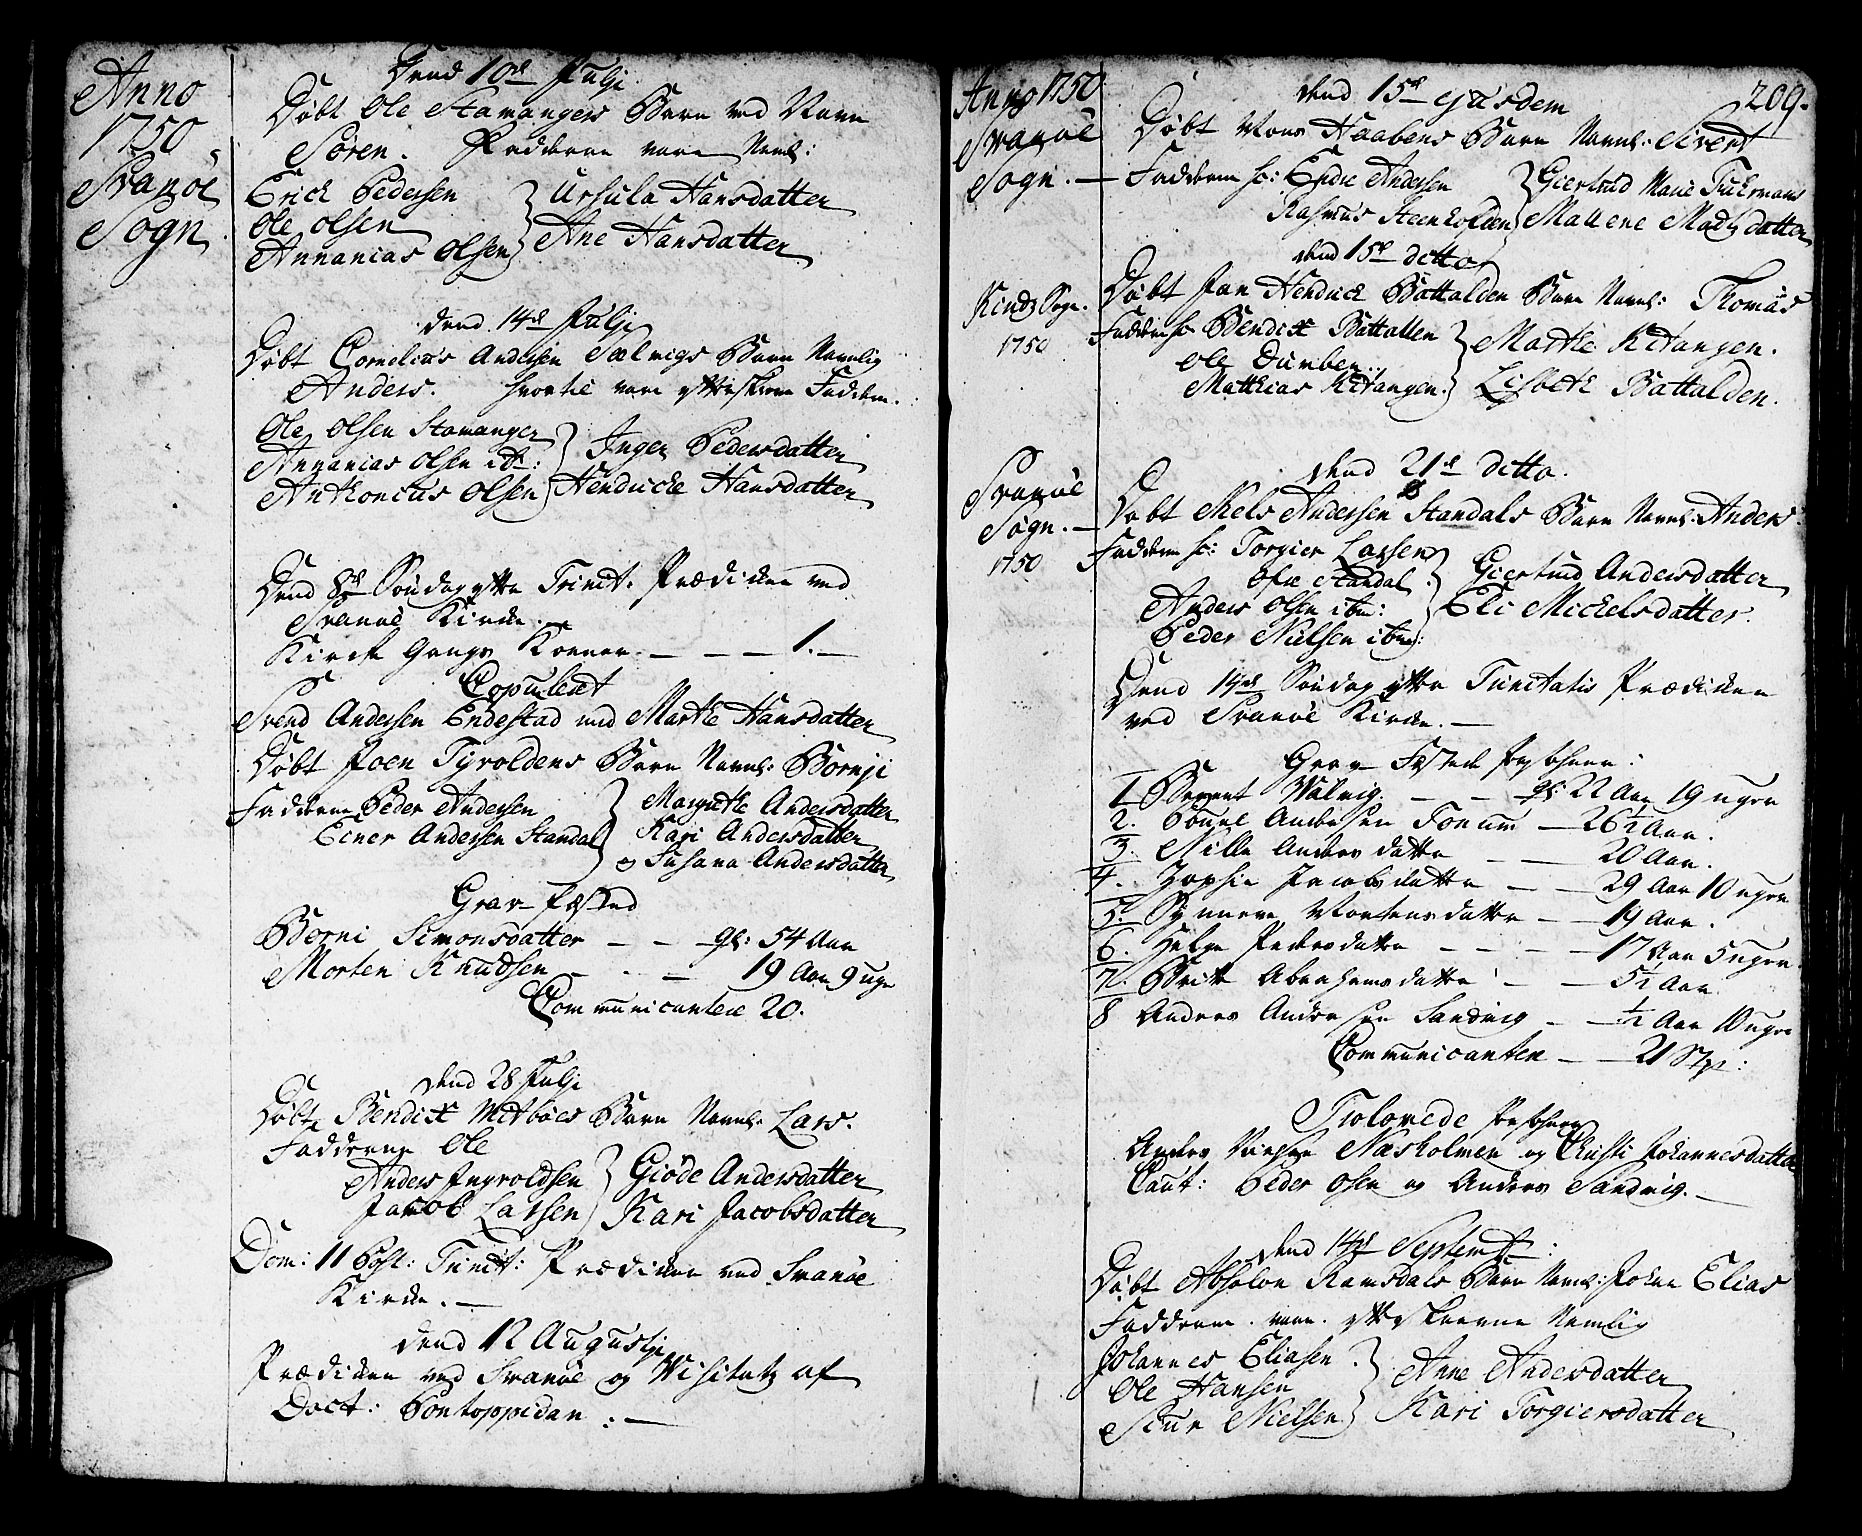 Anno
1750
Svanöe
Sogn
Dend 10de Julj
Döbt Ole Stavangers Barn ved Navn
Sören. Fadderne vare Navnl:
Erick Pedersen
Ole Olsen
Annanias Olsen
Ursula Hansdatter
Ane Hansdatter
dend 14de Julj
Döbt Cornelius Andersen Sælvigs Barn Navnlig
Anders. hvortil vare efterskrevne Faddere.
Ole Olsen Stavanger
Annanias Olsen ib:
Anthonius Olsen
Inger Pedersdatter
Hendricke Hansdatter
Dend 8de Söndag efter Trinit. Prædiken ved
Svanöe Kirke.
Kirke Gangs Koener. — — — 1. —
Copuleret
Svend Andersen Endestad med Marthe Hansdatter
Döbt Joen Tyvoldens Barn Navnl: Börnji
Fadderne Peder Andersen
Einer Andersen Standal
Margrethe Andersdatter
Kari Andersdatter
og Susana Andersdatter
Grav-fæsted
Berni Simonsdatter — — gl: 54 Aar
Morten Knudsen — — 19 Aar 9 uger
Communicantere 20.
dend 28 Julj
Döbt Bendix Mitböes Barn Navnl: Lars.
Fadderne Ole
Anders Ingvoldsen
Jacob Larsen
Giöde Andersdatter
Kari Jacobsdatter
Dom: 11 Post: Trinit: Prædiken ved Svanöe
Kirke. —
dend 12 Augustj
Prædiken ved Svanöe og Visitatz af
Doct: Pontoppidan : —
209.
Anno 1750
Svanöe
Sogn. —
dend 15de ejusdem
Döbt Mons Haabens Barn Navnl: Sivert
Faddere sc: Endre Andersen
Rasmus Steenholden
Giertrud Marie Tuchsmans
Mallene Madzdatter
dend 15de ditto
Kindz Sogn.
1750
Döbt Jan Hendrick Battalden Barn Navnl: Thomas
Faddere sc Bendix Battallen
Ole
Matthias Kitangen.
Marthe Kitangen.
Lisbeth Battalden.
Svanöe
Sogn. —
1750
dend 21de ditto.
Döbt Niels Andersen Standals Barn Navnl: Anders
Faddere sc: Torgier Larsen
Ofre Standal
Anders Olsen ibm:
Peder Nielsen ibm:
Giertrud Andersdatter
Eli Mickelsdatter.
Dend 14de Söndag efter Trinitatis Prædiken
ved Svanöe Kirke. —
Grav-Fæstede
1 Berent Walvig. — — gl: 22 Aar 19 uger
2. Poul Andersen Tonum — 26½ Aar.
3. Nille Andersdatter — — 20 Aar.
4. Sophie Jacobsdatter — — 29 Aar 10 uger
5. Synneva Mortensdatter — 19 Aar.
6. Helge Pedersdatter — — — 17 Aar 5 uger.
7. Britte Abrahamsdatter — — 5½ Aar
8 Anders Andersen Sandvig — — ½ Aar 10 uger
Communicantere — — 21 Stk:
Trolovede
Anders Næsholmen og Christi Johannesdatter
Caut: Peder Osen og Anders Sandvig. —
dend 14de Septembr:
Döbt Absalon Ramsdals Barn Navnl: Johan Elias
Fadderne vare efterskrevne Navnlig
Johannes Eliasen
Ole Hansen
Siur Nielsen
Anne Andersdatter
Kari Torgiersdatter